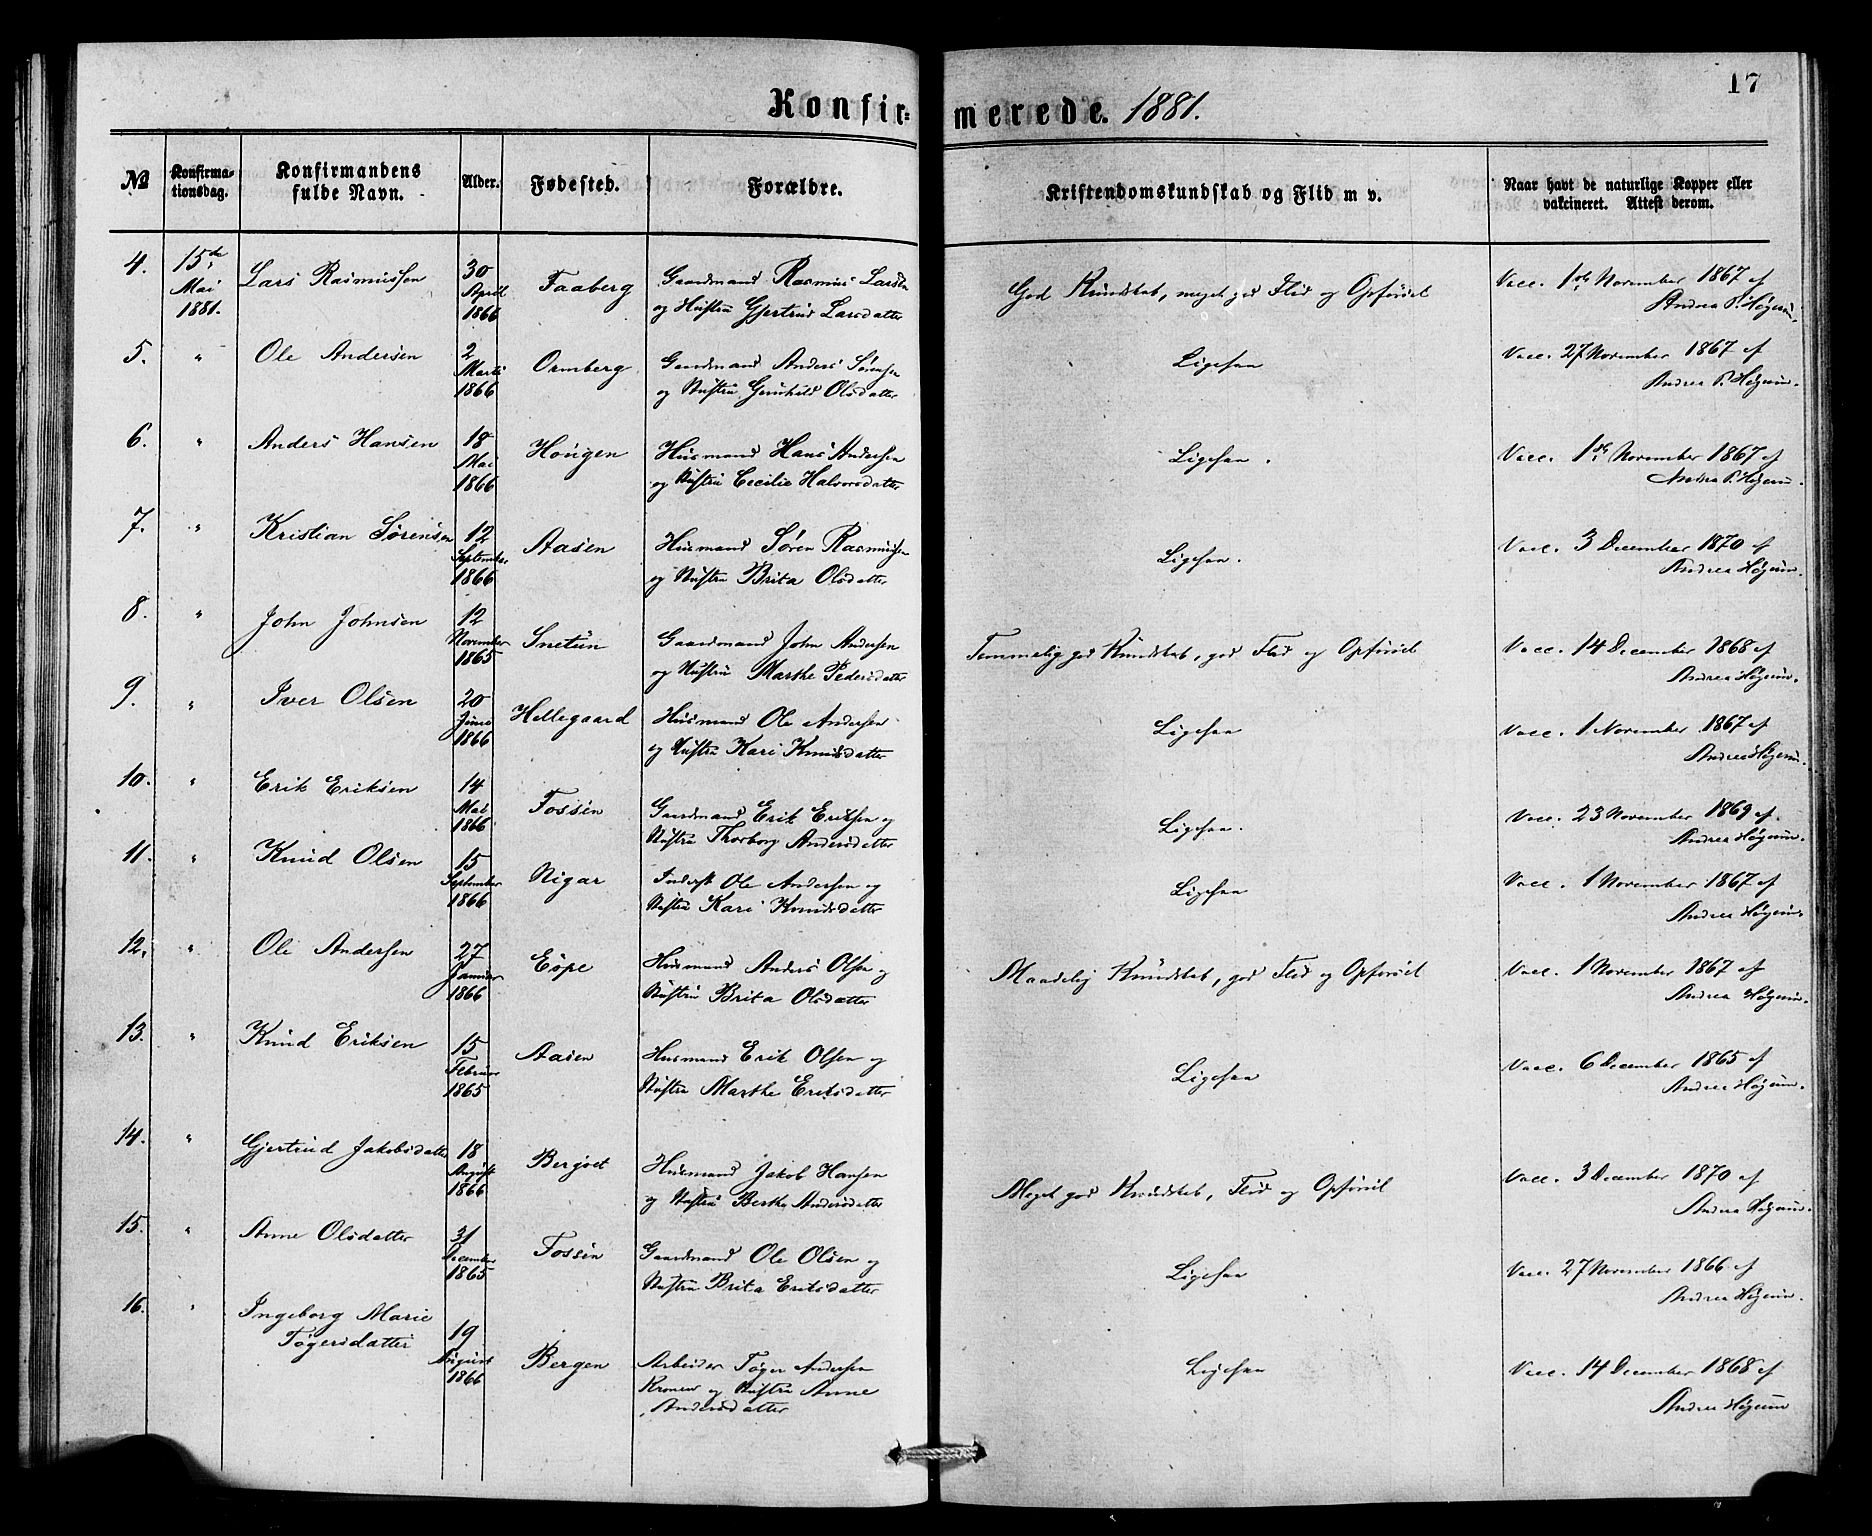 17
Konfirmerede. 1881.
№ Konfirmationsdag. Konfirmandens fulde Navn. Alder. Fødested. Forældre. Kristendomskundskab og Flid m v. Naar havt de naturlige Kopper eller vakcineret. Attest derom.
4. 15de Mai 1881. Lars Rasmussen 30 April 1866 Faaberg Gaardmand Rasmus Larsen og Hustru Gjertrud Larsdatter God Kundskab, meget god Flid og Opførsel Vacc. 1ste November 1867 af Andrea P. Høgeun.
5. " Ole Andersen 2 Marts 1866 Ormberg Gaardmand Anders Sørensen og Hustru Gunhild Olsdatter Ligesaa Vacc. 27 November 1867 af Andrea P. Høgeun.
6. " Anders Hansen 18 Mai 1866 Hougen Husmand Hans Andersen og Hustru Cecilie Halvorsdatter Ligesaa. Vacc. 1ste November 1867 af Andrea P. Høgeun.
7. " Kristian Sørensen 12 September 1866 Aasen Husmand Søren Rasmussen og Hustru Brita Olsdatter Ligesaa. Vacc. 3 December 1870 af Andrea Høgeun.
8. " John Johnsen 12 November 1865 Snetun Gaardmand John Andersen og Hustru Marthe Pedersdatter Temmelig god Kundskab, god Flid og Opførsel Vacc. 14 December 1868 af Andrea Høgeun.
9. " Iver Olsen 20 Juni 1866 Hellegaard Husmand Ole Andersen og Hustru Kari Knudsdatter Ligesaa Vacc. 1 November 1867 af Andrea Høgeun.
10. " Erik Eriksen 14 Mai 1866 Fossen Gaardmand Erik Eriksen og Hustru Thorborg Andersdatter Ligesaa. Vacc. 23 November 1869 af Andrea Høgeun.
11. " Knud Olsen 15 September 1866 Nigar Inderst Ole Andersen og Hustru Kari Knudsdatter Ligesaa Vacc. 1 November 1867 af Andrea Høgeun.
12. " Ole Andersen 27 Januar 1866 Espe Husmand Anders Olsen og Hustru Brita Olsdatter Maadelig Kundskab, god Flid og Opførsel Vacc. 1 November 1867 af Andrea Høgeun.
13. " Knud Eriksen 15 Februar 1865 Aasen Husmand Erik Olsen og Hustru Marthe Eriksdatter Ligesaa Vacc. 6 December 1865 af Andrea Høgeun.
14. " Gjertrud Jakobsdatter 18 August 1866 Bergset Husmand Jakob Hansen og Hustru Berthe Andersdatter Meget god Kundskab, Flid og Opførsel Vacc. 3 December 1870 af Andrea Høgeun.
15. " Anne Olsdatter 31 December 1865 Fossen Gaardmand Ole Olsen og Hustru Brita Eriksdatter Ligesaa Vacc. 27 November 1866 af Andrea Høgeun.
16. " Ingeborg Marie Tøgersdatter 19 August 1866 Bergen Arbeider Tøger Andersen Kronen og Hustru Anne Andersdatter Ligesaa Vacc. 14 December 1868 af Andrea Høgeun